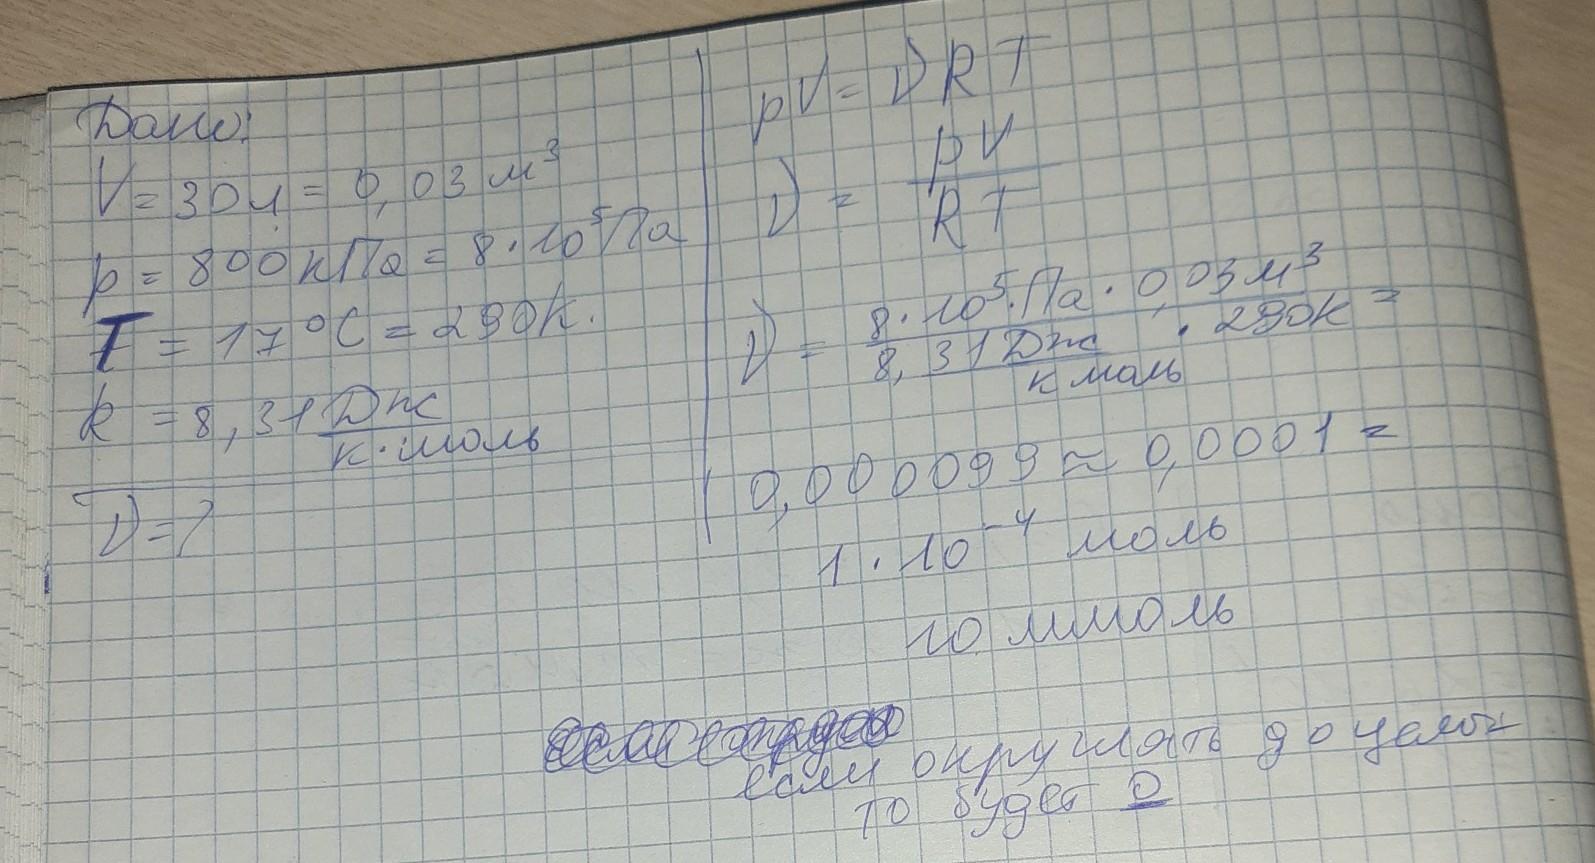 Дано:
V = 30 л = 0,03 м³
p = 800 кПа = 8 · 10⁵ Па
T = 17 °C = 290 К.
R = 8,31 Дж / К · моль
ν = ?
pV = νRT
ν = pV / RT
ν = 8 · 10⁵ · Па · 0,03 м³ / 8,31 Дж / К моль · 290 К =
0,000099 ≈ 0,0001 =
1 · 10⁻⁴ моль
10 ммоль
если округлять до целых
то будет 0